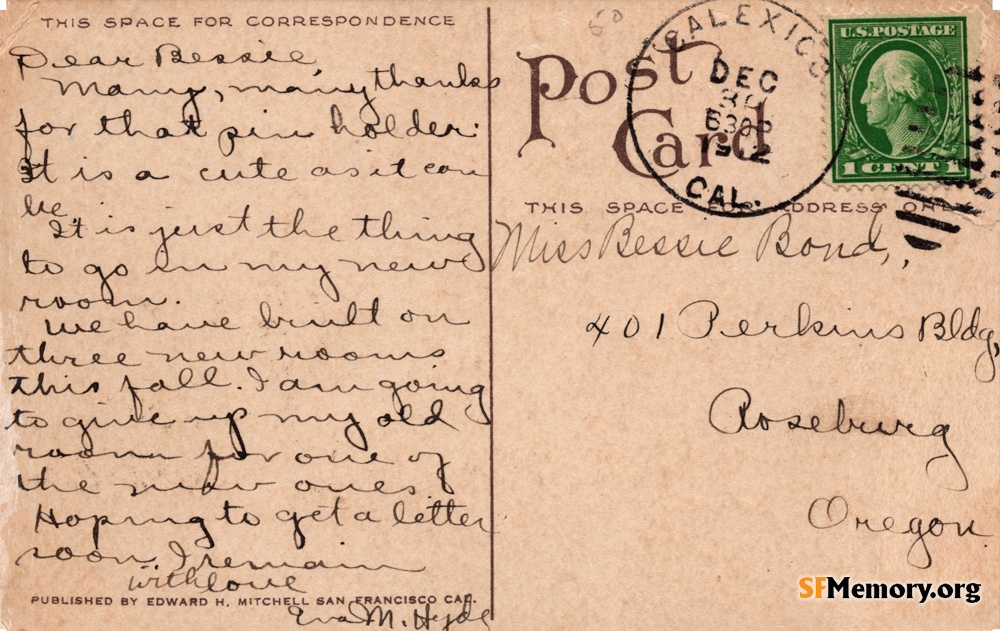 THIS SPACE FOR CORRESPONDENCE
Dear Bessie,
Many, many thanks
for that pin holder.
It is a cute as it can
be.
It is just the thing
to go in my new
room.
We have built on
three new rooms
this fall. I am going
to give up my old
room for one of
the new ones.
Hoping to get a letter
soon I remain
with love
Eva M. Hyde
PUBLISHED BY EDWARD H. MITCHELL SAN FRANCISCO CAL.
60
Post
Card
CALEXICO
DEC
630P
CAL.
U.S. POSTAGE
1 CENT 1
THIS SPACE FOR ADDRESS ONLY
Miss Bessie Bond,
401 Perkins Bldg,
Roseburg
Oregon
SFMemory.org